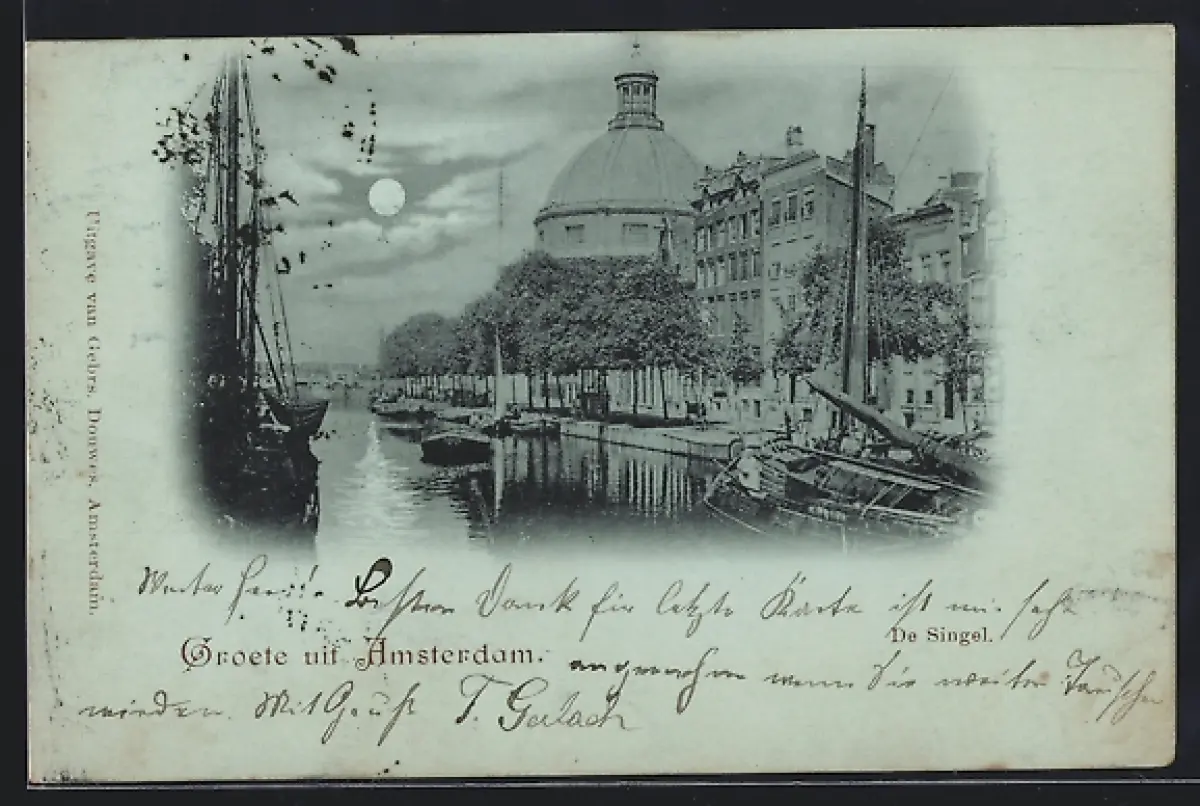 Uitgave van Gebrs. Douwes, Amsterdam.
Werter Besten Dank für letzte Karte ist mir sehr
De Singel.
Groete uit Amsterdam.
angenehm wenn Sie weiter Tauschen
würden. Mit Gruß T. Gerlach